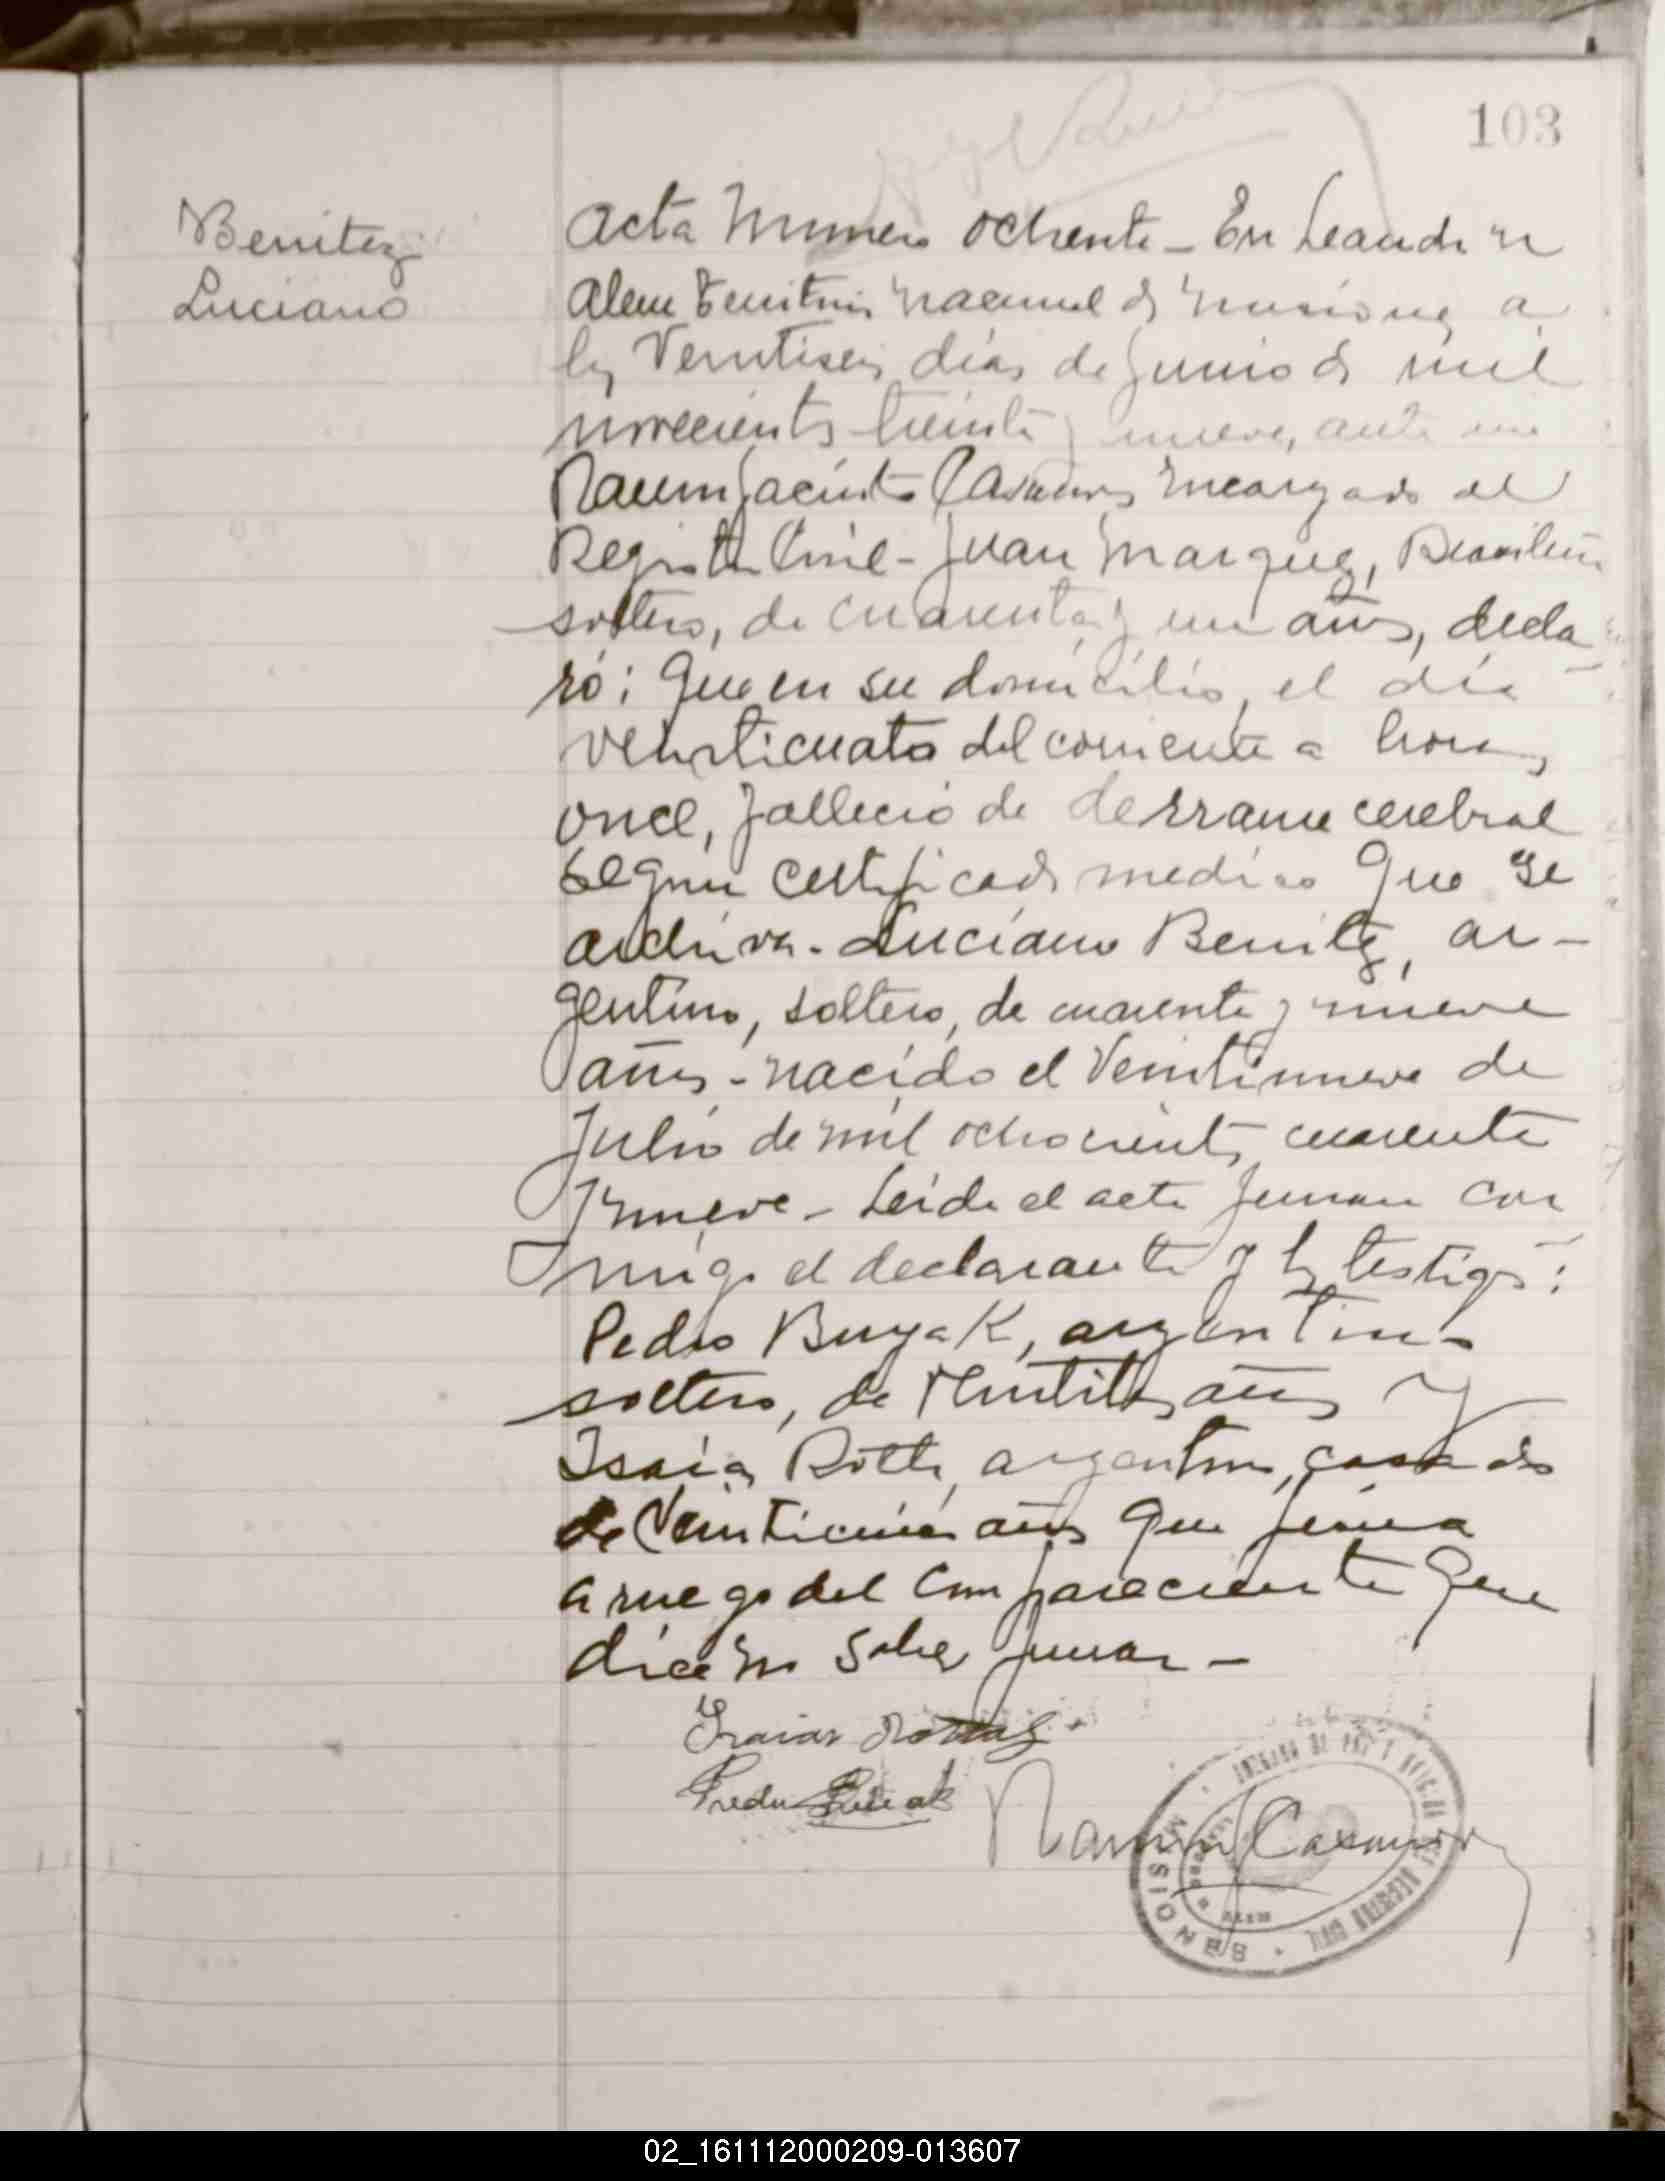 103
Benitez
Luciano
Acta Numero ochenta - En Leandro N
Alem Territorio Nacional de Misiones a
los Veintiseis días de Junio de mil
novecientos treinta y nueve, ante mi
Ramon Jacinto Casamos Encargado del
Registro Civil - Juan Marquez, Brasilero
soltero, de cuarenta y un años, decla
ró: Que en su domicilio, el día
veinticuatro del corriente a horas
once, falleció de derrame cerebral
segun certificado medico que se
archiva - Luciano Benitez, ar-
gentino, soltero, de cuarenta y nueve
años - nacido el Veintinueve de
Julio de mil ochocientos cuarenta
y nueve - Leida el acta firman con
migo el declarante y los testigos:
Pedro Buyak, argentino
soltero, de veintitres años y
Isaias Roth, argentino, casado
de Veinticinco años que firma
a ruego del compareciente que
dice no saber firmar -
Isaias
Pedro
Ramon J Casamos
MISIONES
REGISTRO CIVIL
02_161112000209-013607